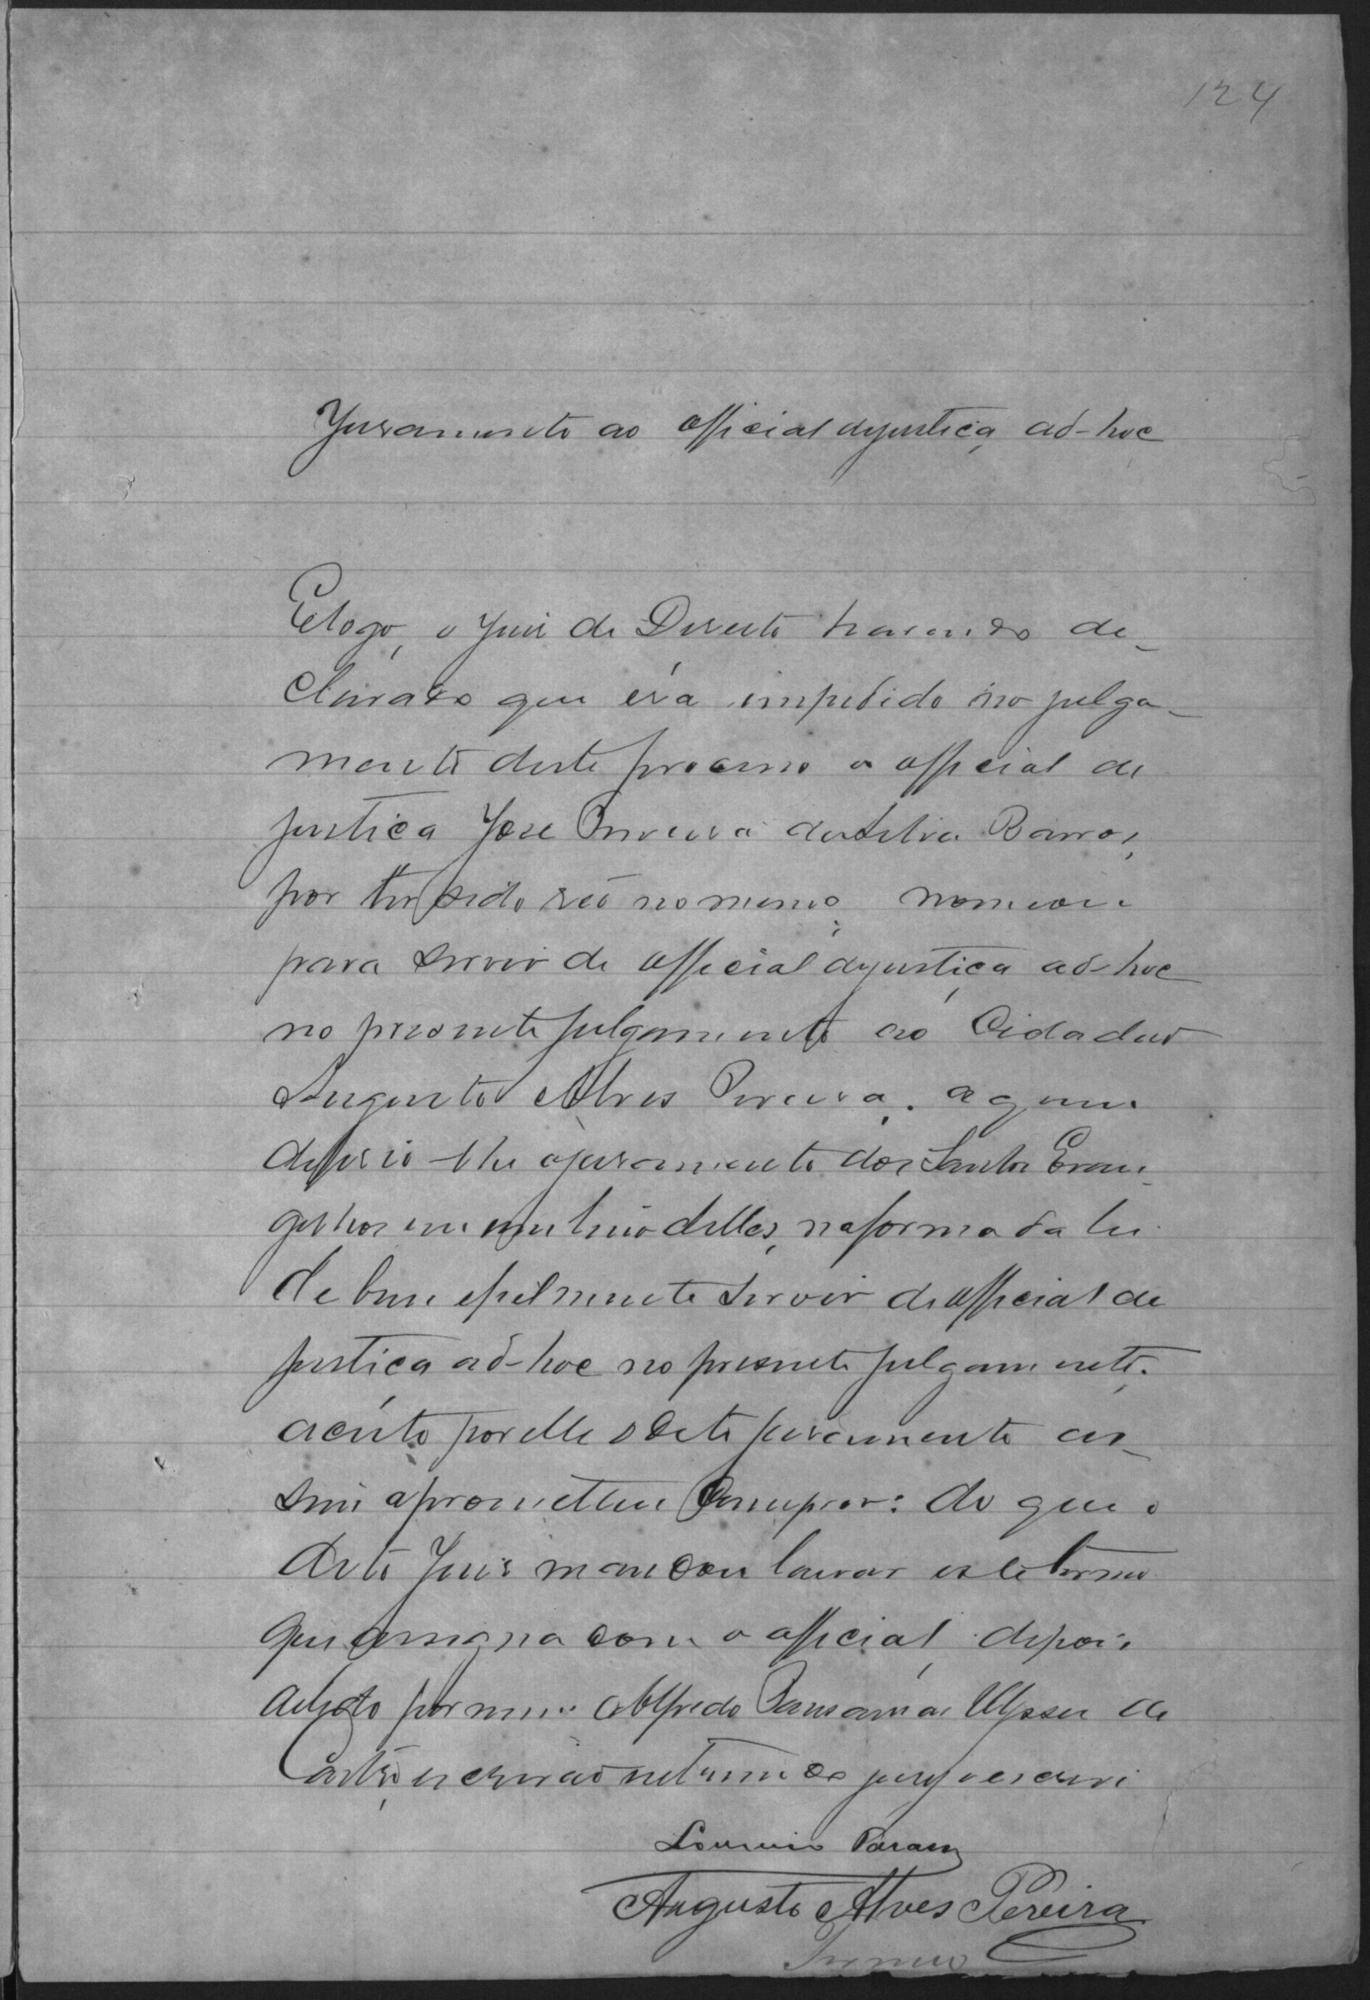 124
Juramento ao official dejustiça ad-hoc
E logo, o Juis de Direito havendo de-
clarado que éra impedido no julga-
mento deste processo o official de
justiça José Pereira da Silva Barros,
por ter sido réo no mesmo, nomeou
para servir de official dejustiça ad-hoc
no presente julgamento ao Cidadão
Augusto Alves Pereira, a quem
deferio-lhe ojuramento dos Santos Evan-
gelhos em um livro delles, naforma da lei
de bem efielmente servir de official de
justiça ad-hoc no presente julgamento.
aceito porelle o dito juramento as-
sim oprometteu Comprir: do que o
dito Juis mandou lavrar este termo
que assigna com o official, depois
de lido por mim Alfredo Ulysses de
Castro, escrivão do jury o escrevi
Augusto Alves Pereira